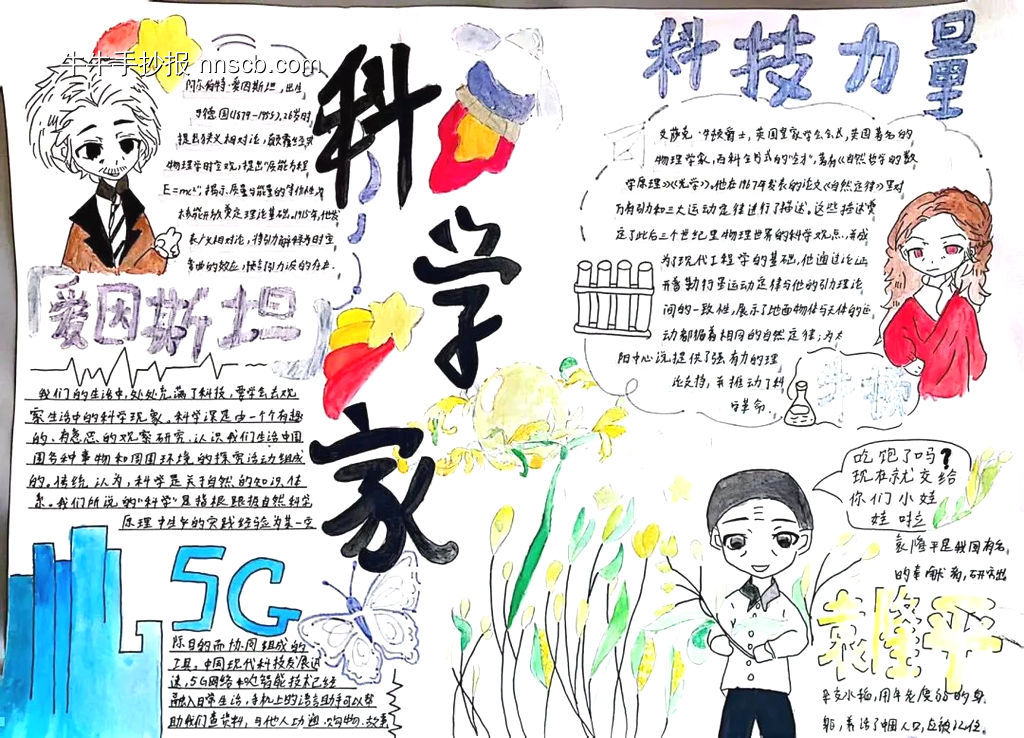 牛牛手抄报 nnscb.com
阿尔伯特·爱因斯坦,出生
于德国(1879-1955),26岁时
提出狭义相对论,颠覆经典
物理学时空观,提出"质能方程
E=mc²",揭示质量与能量的等价性,为
核能开放奠定理论基础。1915年,他发
表广义相对论,将引力解释为时空
弯曲的效应,预言引力波的存在.
爱因斯坦
科学家
科技力量
艾萨克·牛顿爵士,英国皇家学会会长,英国著名的
物理学家,百科全书式的"全才",著有《自然哲学的数
学原理》《光学》。他在1687年发表的论文《自然定律》里对
万有引力和三大运动定律进行了描述。这些描述奠
定了此后三个世纪里物理世界的科学观点,并成
为了现代工程学的基础,他通过论证
开普勒行星运动定律与他的引力理论
间的一致性,展示了地面物体与天体的运
动都遵循着相同的自然定律;为太
阳中心说提供了强有力的理
论支持,并推动了科
学革命.
牛顿
我们的生活中,处处充满了科技,要学会去观
察生活中的科学现象。科学课是由一个个有趣
的、有意思的观察研究、认识我们生活中周
围各种事物和周围环境的探究活动组成
的。传统认为,科学是关于自然的知识体
系。我们所说的"科学"是指根据自然科学
原理
的实践经验
5G
际目的而协同组成的
工具。中国现代科技发展迅
速,5G网络和
智能技术已经
融入日常生活,手机上的语音助手可以帮
助我们查资料,与他人沟通、购物、
吃饱了吗?
现在就交给
你们小娃
娃啦
袁隆平是我国有名
的
,研究出
袁隆平
杂交水稻,用
的
,养活了中国人口,